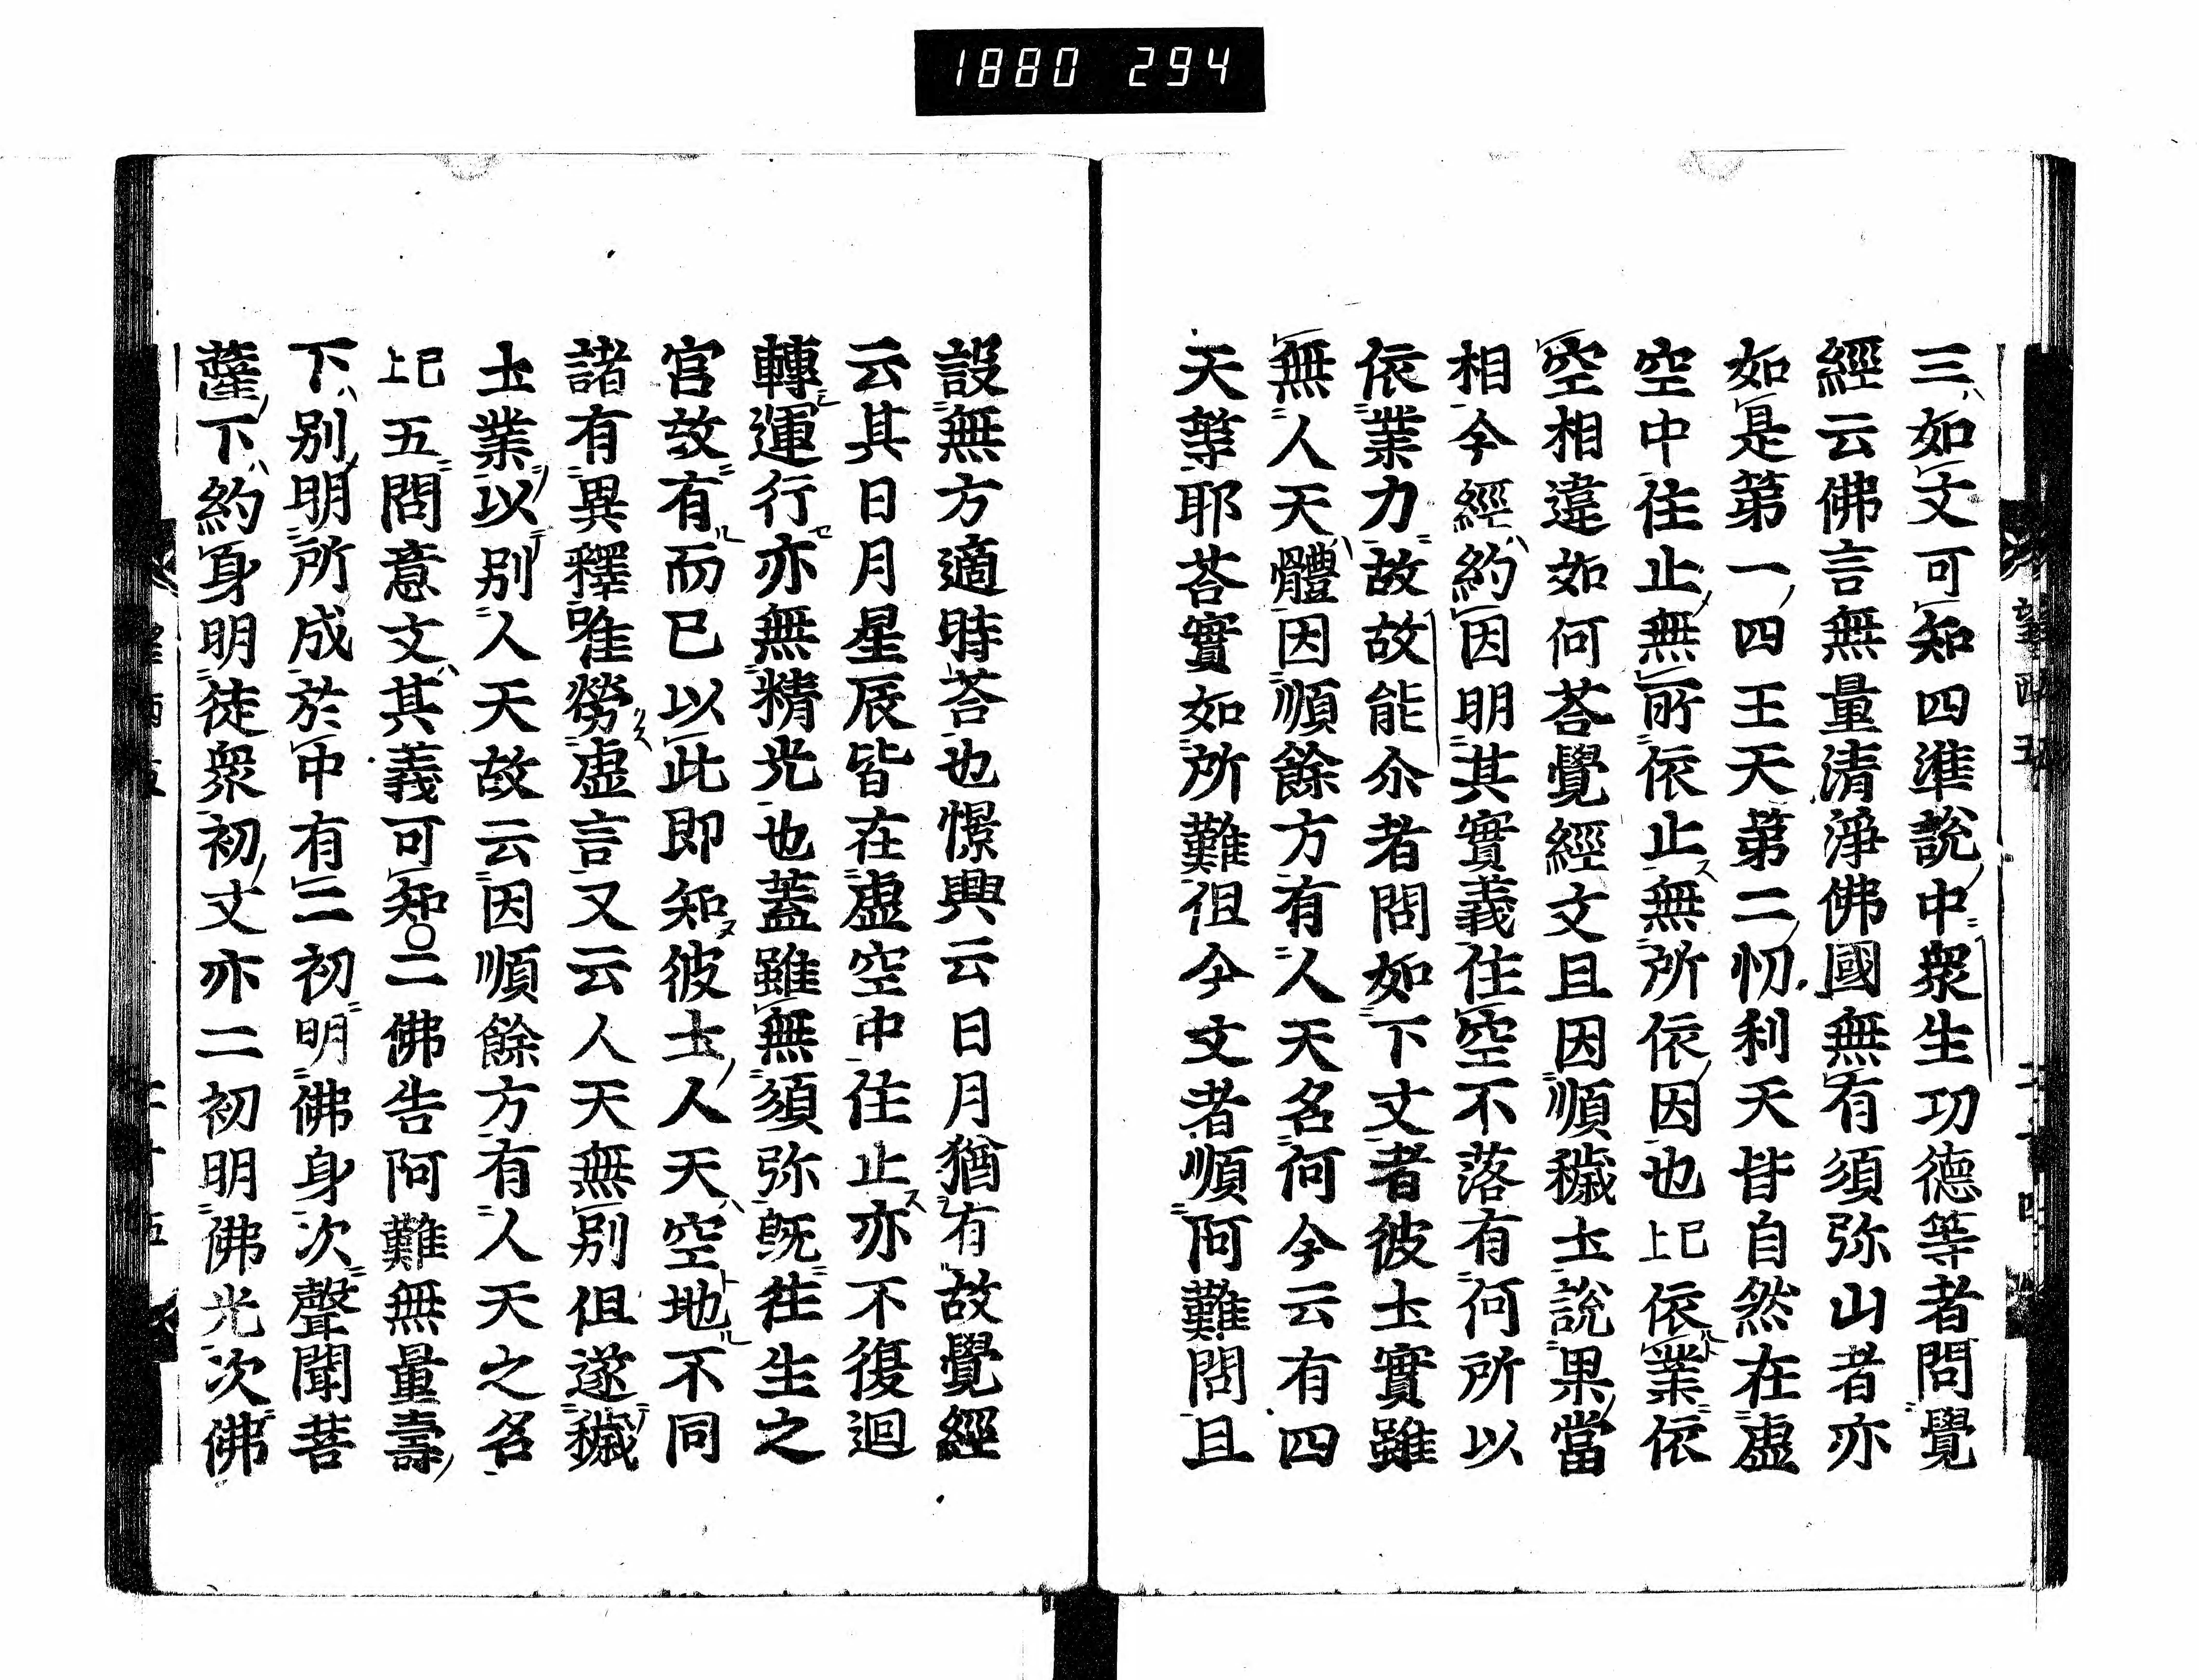 1880 294
三如文可知四準說中衆生功德等者問覺
經云佛言無量清淨佛國無有須弥山者亦
如是第一四王天第二忉利天皆自然在虛
空中住止無所依止無所依因也已上依業依
空相違如何荅覺經文且因順穢土說果當
相今經約因明其實義住空不落有何所以
依業力故故能尒者問如下文者彼土實雖
無人天體因順餘方有人天名何今云有四
天等耶荅實如所難但今文者順阿難問且
設無方適時荅也憬興云日月猶有故覺經
云其日月星辰皆在虛空中住止亦不復迴
轉運行亦無精光也蓋雖無須弥旣往生之
官故有而已以此即知彼土人天空地不同
諸有異釋唯勞虛言又云人天無別但遂穢
土業以別人天故云因順餘方有人天之名
已上五問意文其義可知○二佛告阿難無量壽
下別明所成於中有二初明佛身次聲聞菩
薩下約身明徒衆初文亦二初明佛光次佛